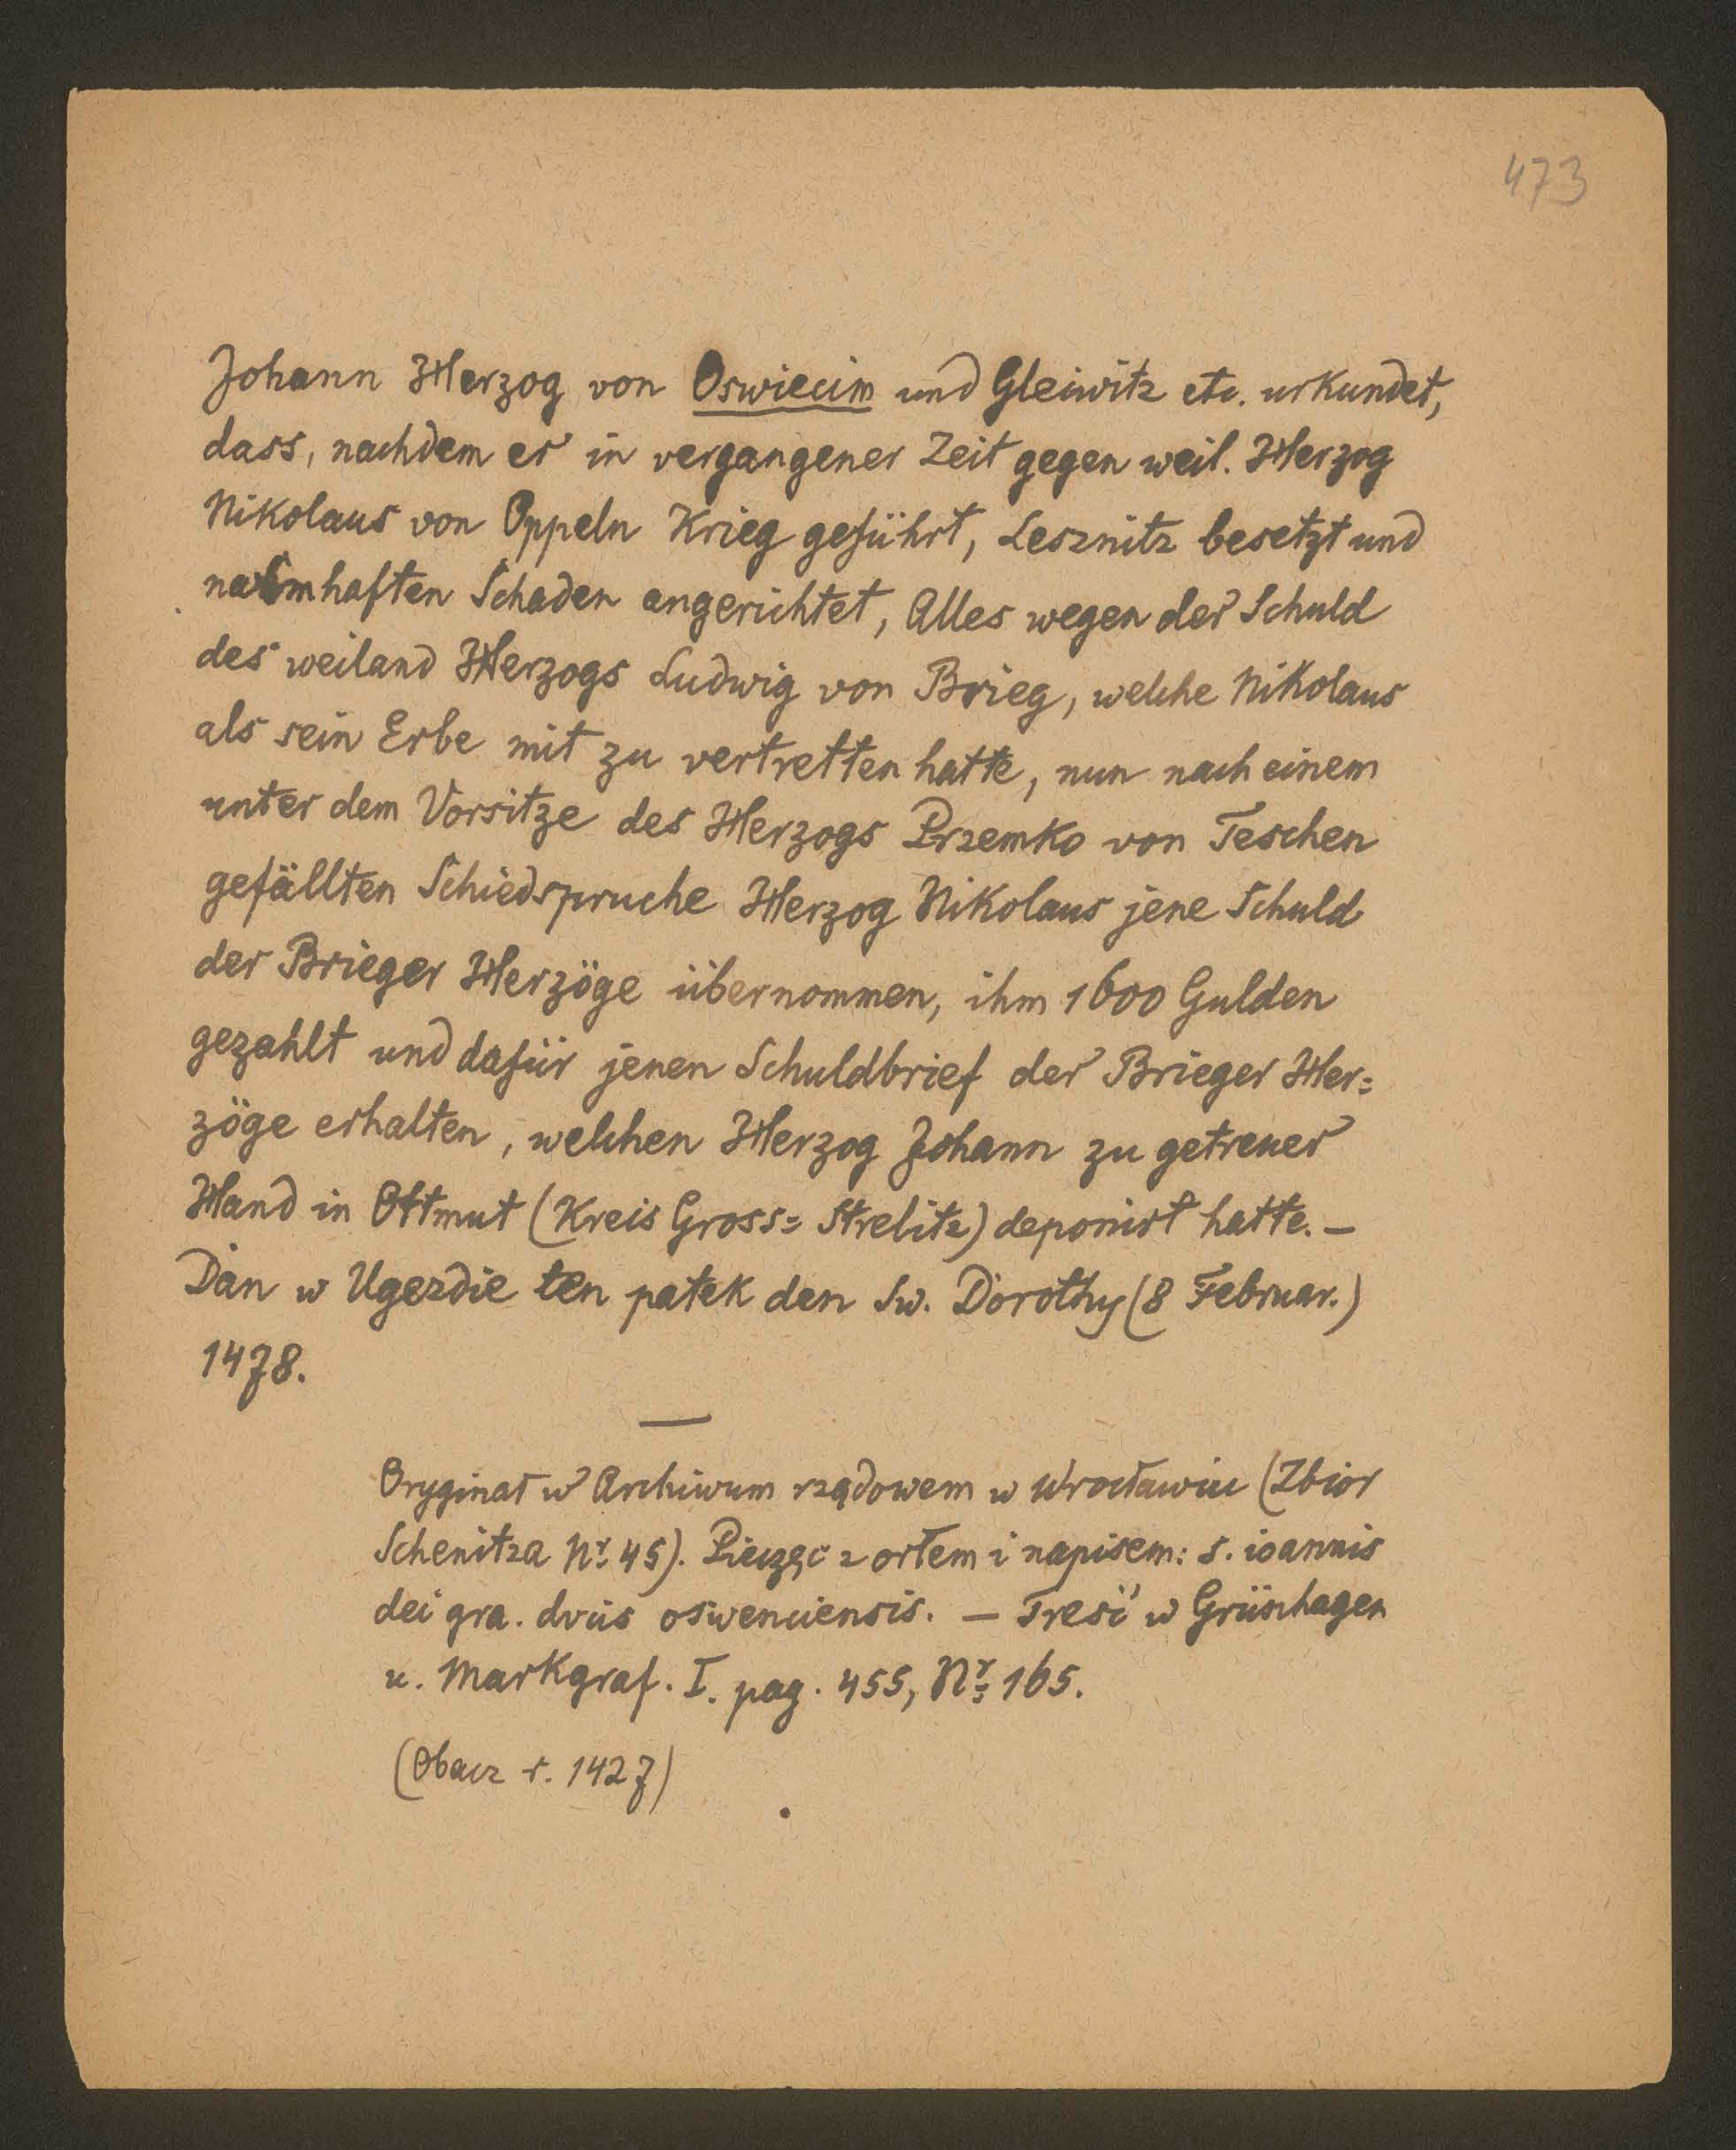 473
Johann Herzog von Oswiecim und Gleiwitz etc. urkundet,
dass, nachdem er in vergangener Zeit gegen weil. Herzog
Nikolaus von Oppeln Krieg geführt, Lesznitz besetzt und
namhaften Schaden angerichtet, Alles wegen der Schuld
des weiland Herzogs Ludwig von Brieg, welche Nikolaus
als sein Erbe mit zu vertretten hatte, nun nach einem
unter dem Vorsitze des Herzogs Przemko von Teschen
gefällten Schiedspruche Herzog Nikolaus jene Schuld
der Brieger Herzöge übernommen, ihm 1600 Gulden
gezahlt und dafür jenen Schuldbrief der Brieger Her=
zöge erhalten, welchen Herzog Johann zu getreuer
Hand in Ottmut (Kreis Gross= Strelitz) deponirt hatte. —
Dan w Ugezdie ten patek den Sw. Dorothy (8 Februar.)
1478.
—
Oryginał w Archiwum rządowem w Wrocławiu (Zbior
Schenitza Nr. 45). Pieczęć z orłem i napisem: s. ioannis
dei gra. dvcis oswenciensis. — Treść w Grünhagen
u. Markgraf. I. pag. 455, Nr. 165.
(Obacz r. 1427)